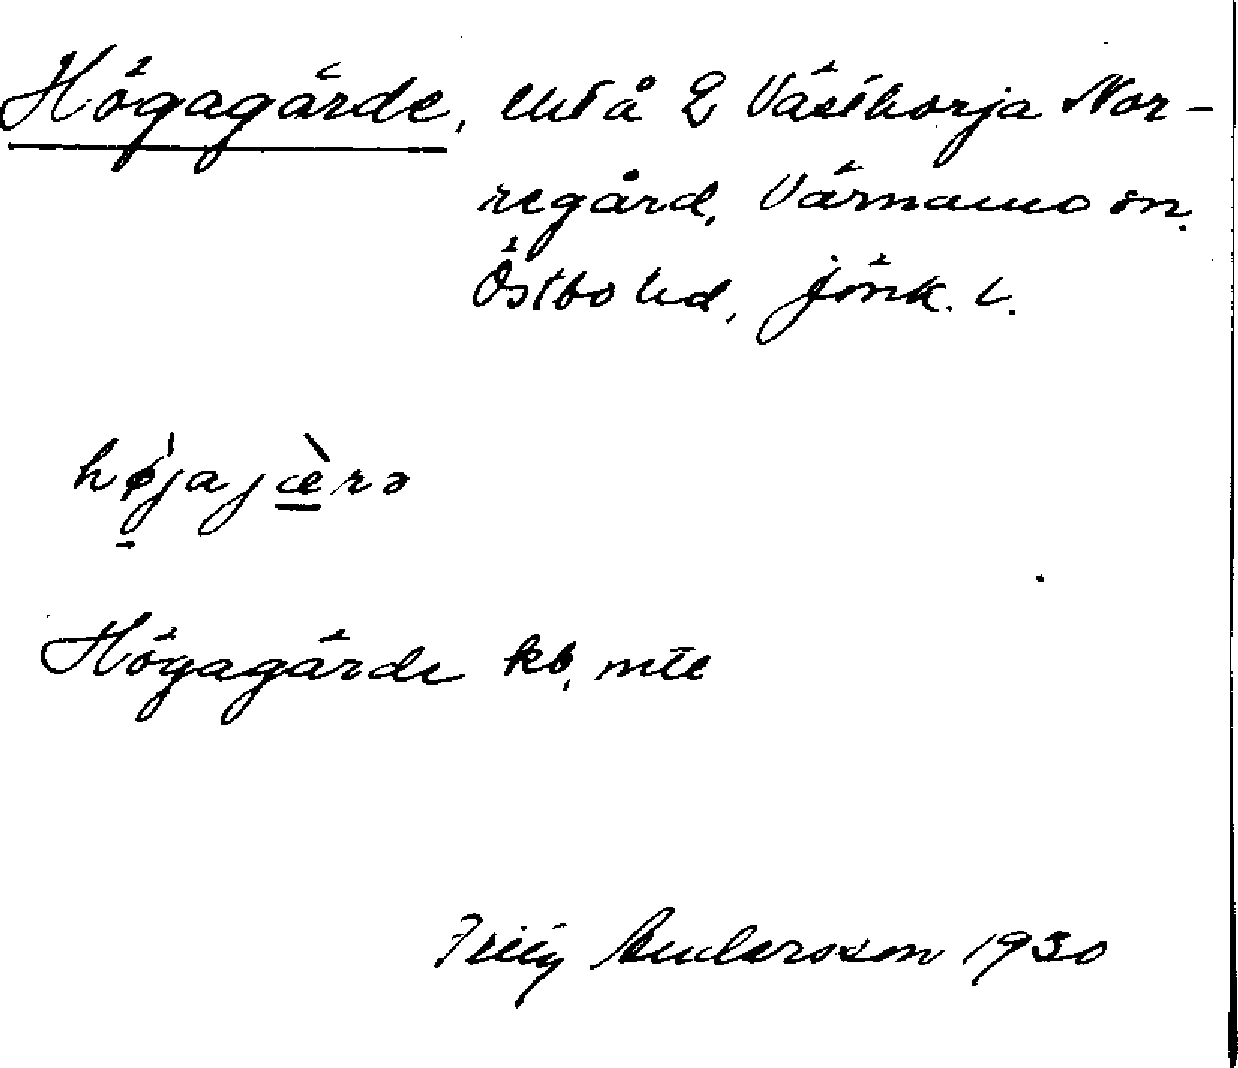 Högagärde, utå 2 Västhorja Nor-
regård, Värnamo sn.
Östbo hd, Jönk. l.
højajæ̀rə
Högagärde kb, mtl
Andersson 1930